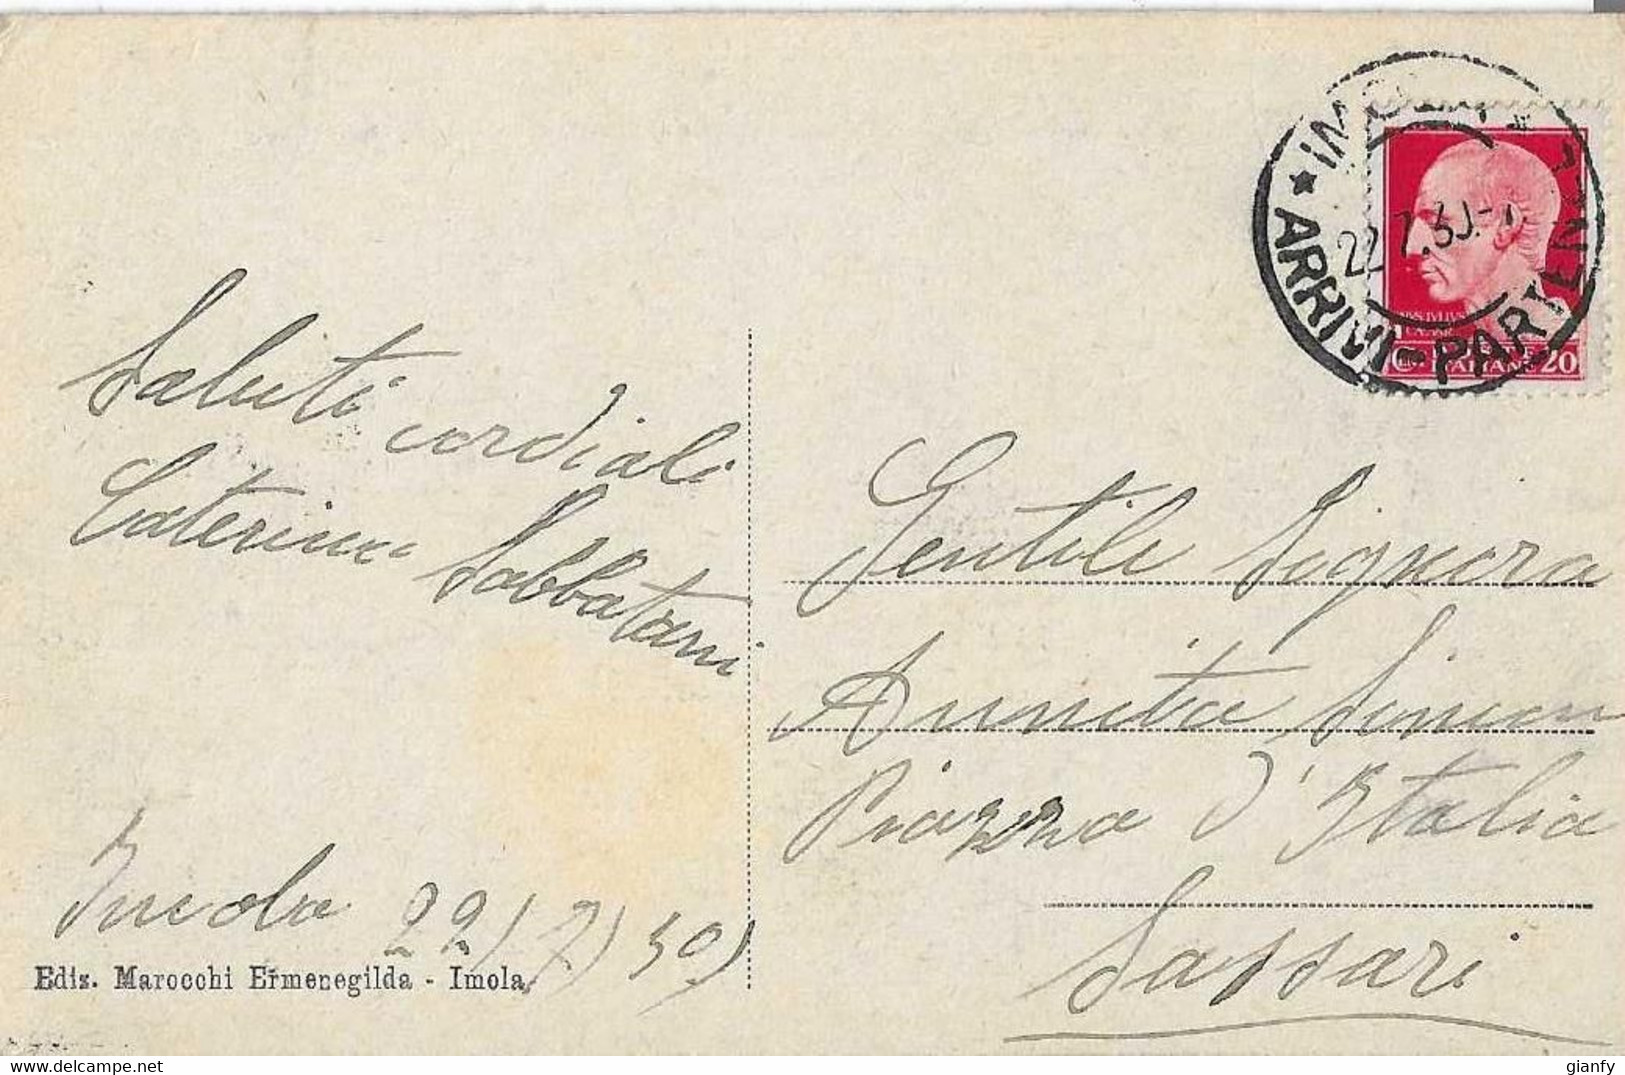 IMOLA
ARRIVI-PARTENZE
22.7.30
IVLIVS
20
Saluti cordiali
Caterina Sabbatani
Gentile Signora
Annita
Piazza d'Italia
Sassari
Imola 22/7/30/
Ediz. Marocchi Ermenegilda - Imola
www.delcampe.net
gianfy